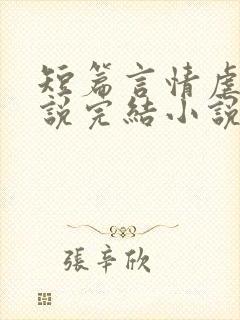 短篇言情虐
説完結小説
張辛欣